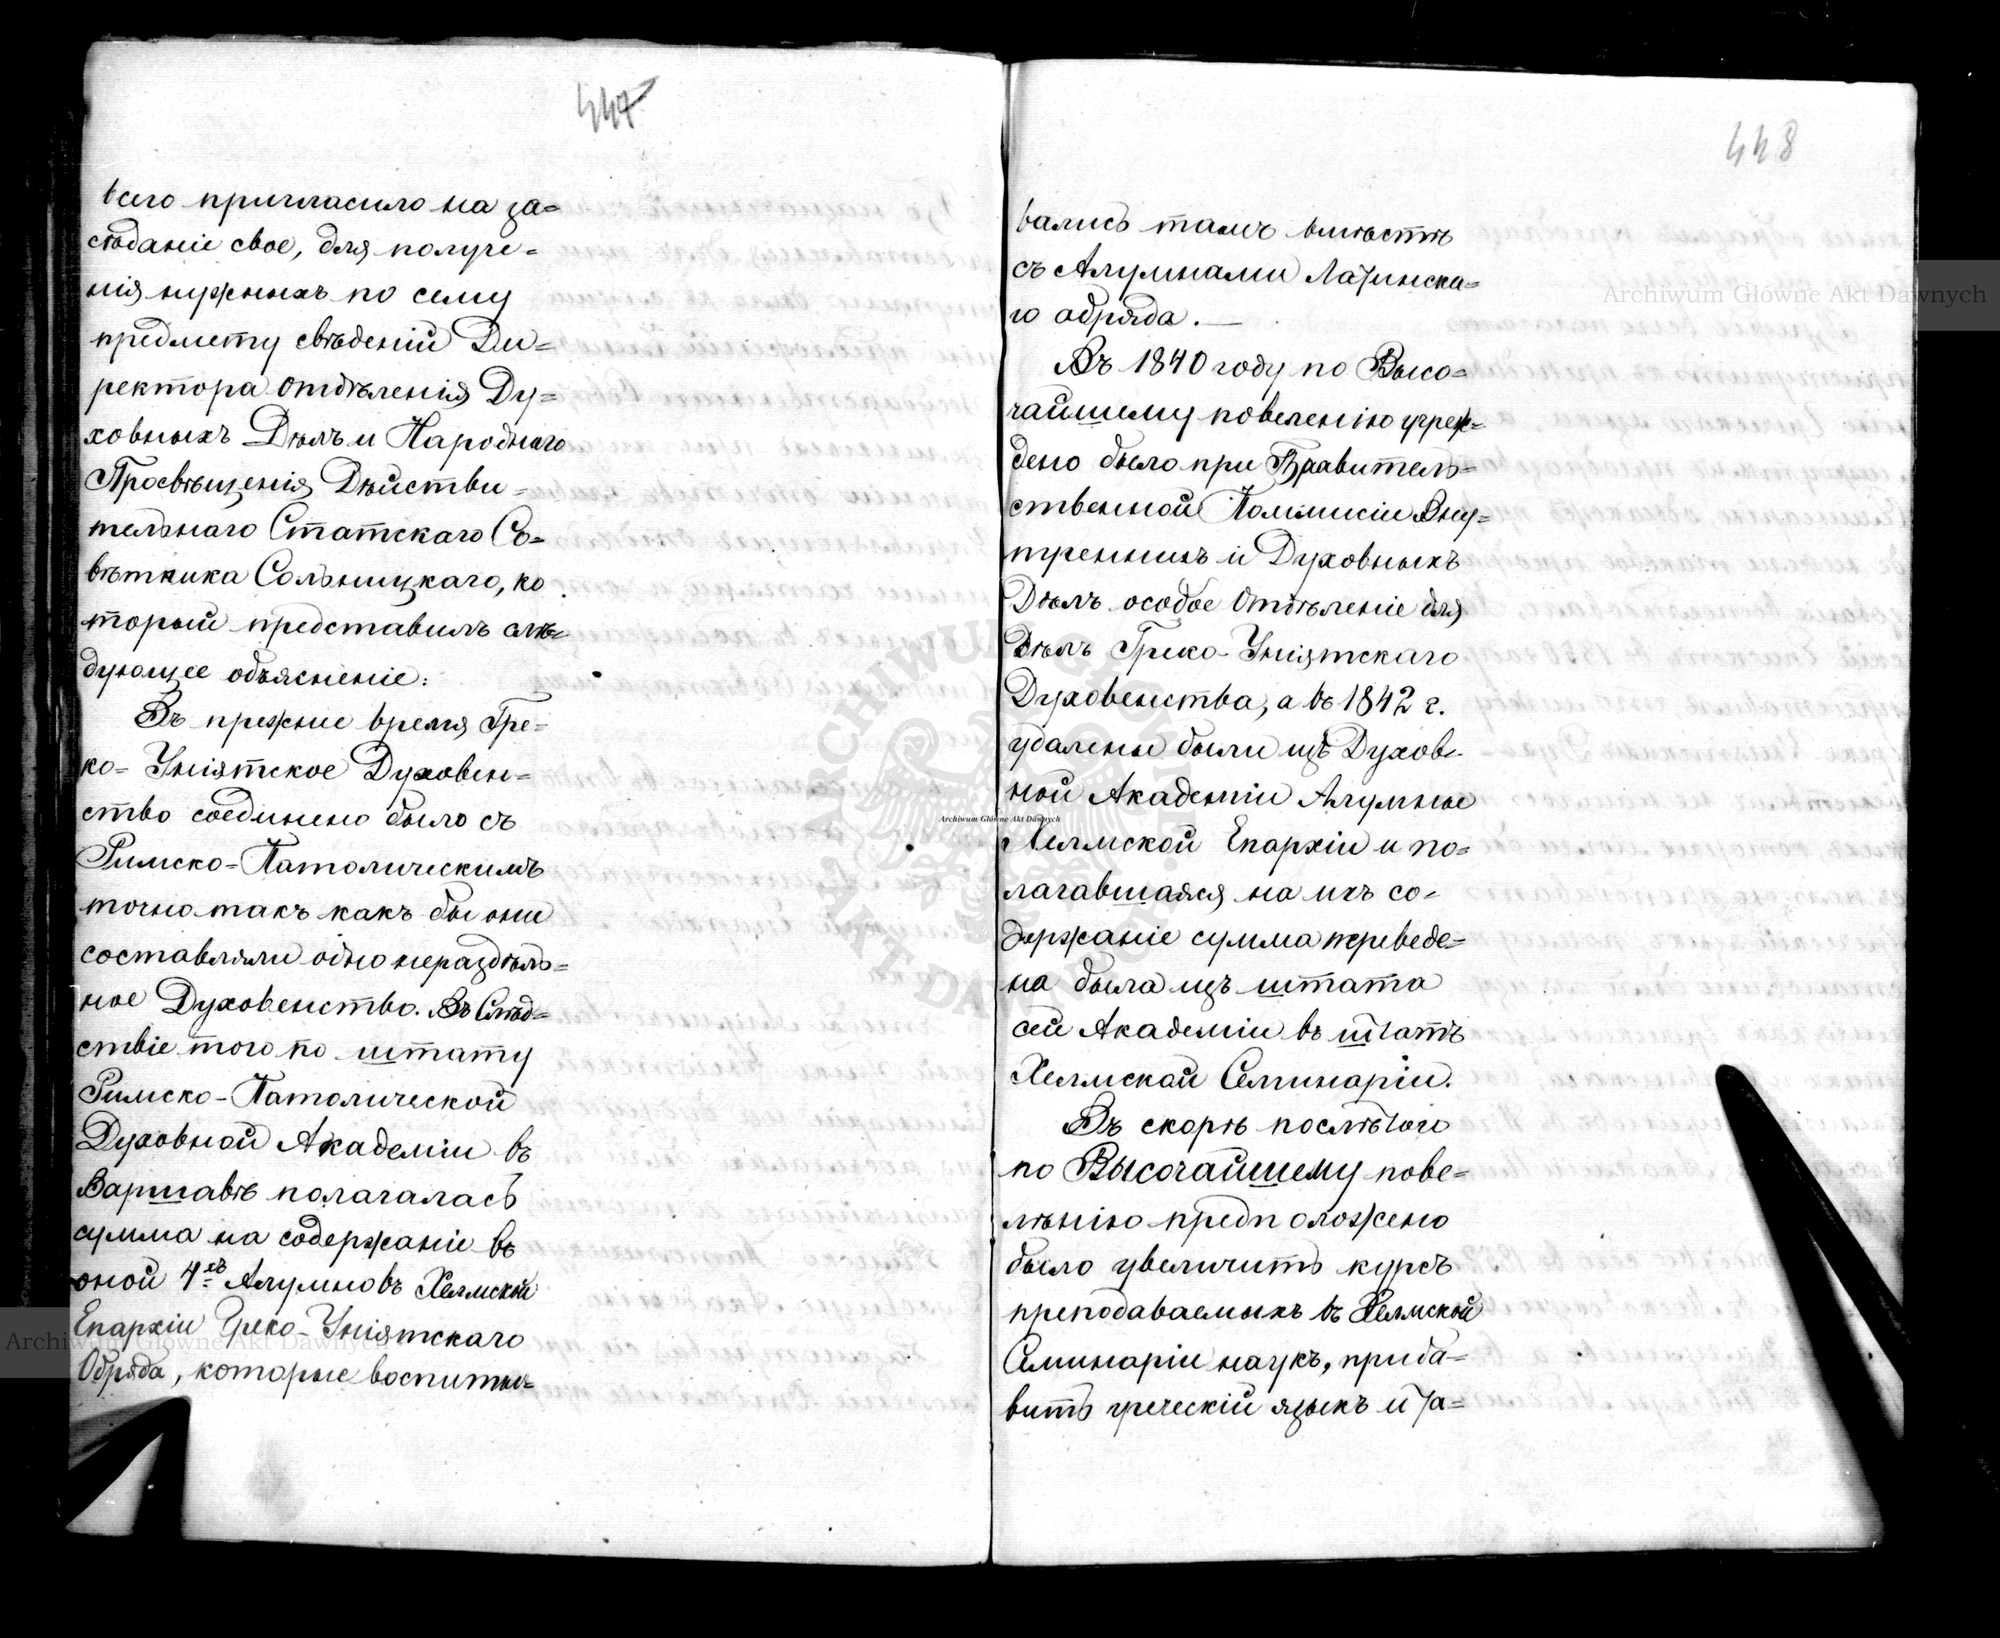 447
всего пригласило на за=
сѣданіе свое, для получе=
нія нужныхъ по сему
предмету свѣденій Ди=
ректора Отдѣленія Ду=
ховныхъ Дѣлъ и Народнаго
Просвѣщенія Дѣйстви=
тельнаго Статскаго Со=
вѣтника Сольницкаго, ко
торый представилъ слѣ=
дующее объясненіе:
Въ прежнее время Гре=
ко=Уніятское Духовен=
ство соединено было съ
Римско=Католическимъ
точно такъ какъ бы они
составляли одно нераздѣль=
ное Духовенство. Въ Слѣд=
ствіе того по штату
Римско-Католической
Духовной Академіи въ
Варшавѣ полагалась
сумма на содержаніе въ
оной 4хъ Алумновъ Хелмской
Епархіи Греко-Уніятскаго
Обряда, которые воспиты=
448
вались тамъ вмѣстѣ
съ Алумнами Латинска=
го обряда.—
Въ 1840 году по Высо=
чайшему повеленію учреж=
дено было при Правитель=
ственной Коммисіи Вну=
треннихъ и Духовныхъ
Дѣлъ особое Отдѣленіе для
Дѣлъ Греко-Уніятскаго
Духовенства, а въ 1842 г.
удалены были изъ Духов-
ной Академіи Алумны
Хелмской Епархіи и по=
лагавшаяся на ихъ со=
держаніе сумма переведе=
на была изъ штата
сей Академіи въ штатъ
Хелмской Семинаріи.
Въ скорѣ послѣ того
по Высочайшему пове=
лѣнію предположено
было увеличить курсъ
преподаваемыхъ въ Хелмской
Семинаріи наукъ, приба=
вить греческій языкъ и та=
Archiwum Główne Akt Dawnych
Archiwum Główne Akt Dawnych
Archiwum Główne Akt Dawnych